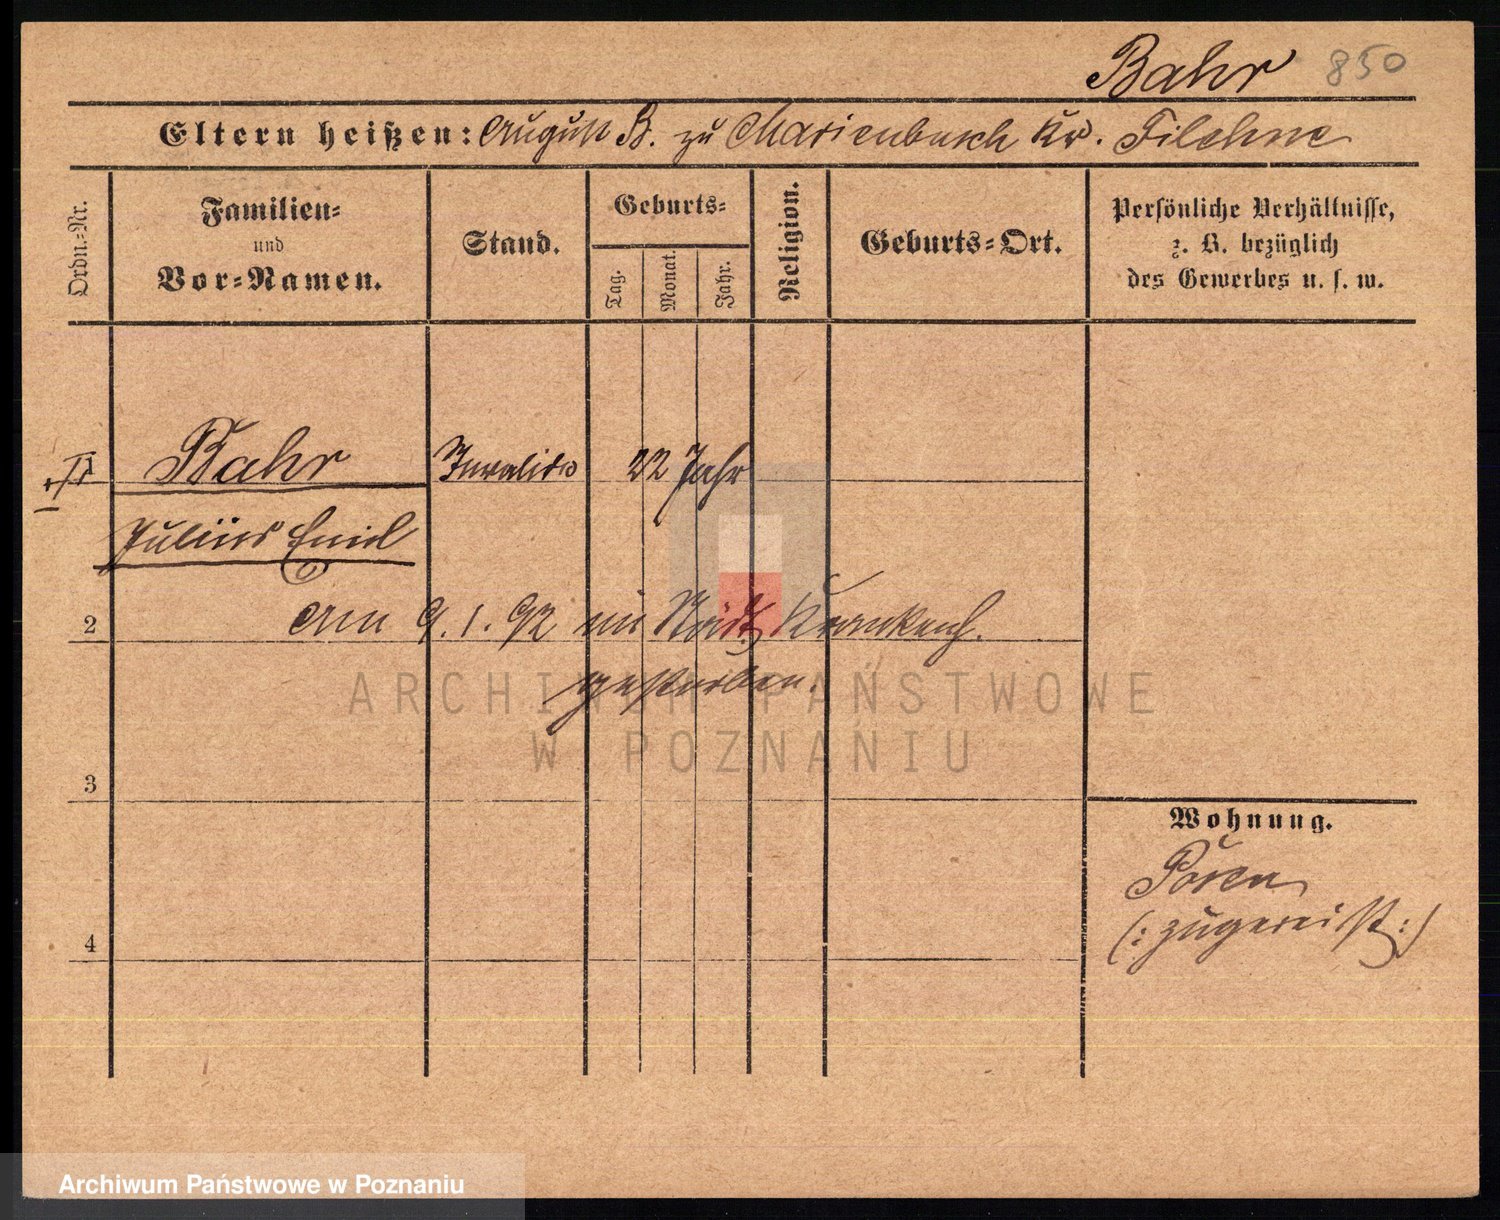 Bahr 850
Eltern heißen: August B. zu Marienbusch Kr. Filehne
Ordn.=Nr.
Familien=
und
Vor=Namen.
Stand.
Geburts=
Tag.
Monat.
Jahr.
Religion.
Geburts=Ort.
Persönliche Verhältnisse,
z. B. bezüglich
des Gewerbes u. s. w.
1 Bahr Invalide 22 Jahr
Julius Emil
2 Am 9.1.92 im Städt. Krankenh.
gestorben.
ARCHIWUM PAŃSTWOWE
W POZNANIU
3
Wohnung.
Posen
(: zugereist :)
4
Archiwum Państwowe w Poznaniu